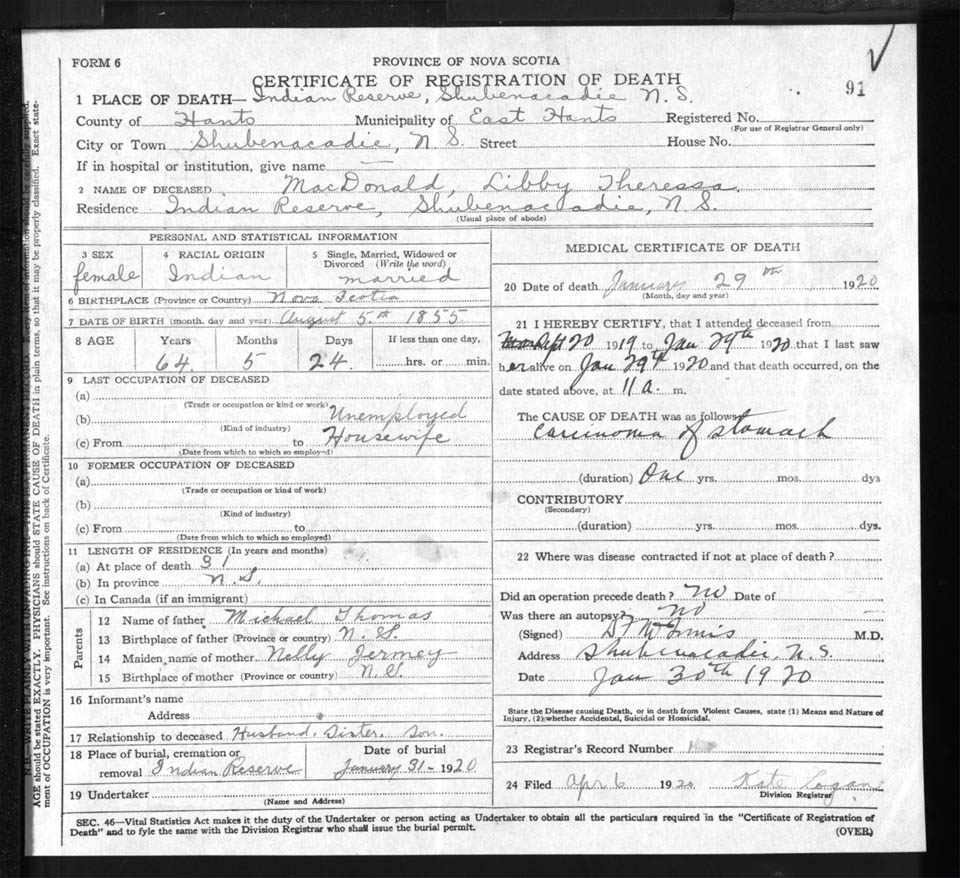 FORM 6
PROVINCE OF NOVA SCOTIA
CERTIFICATE OF REGISTRATION OF DEATH
91
1 PLACE OF DEATH— Indian Reserve, Shubenacadie N. S.
County of Hants Municipality of East Hants Registered No.
(For use of Registrar General only)
City or Town Shubenacadie, N. S. Street House No.
If in hospital or institution, give name —
2 NAME OF DECEASED MacDonald, Libby Theressa.
Residence Indian Reserve, Shubenacadie, N. S.
(Usual place of abode)
PERSONAL AND STATISTICAL INFORMATION
3 SEX female
4 RACIAL ORIGIN Indian
5 Single, Married, Widowed or Divorced (Write the word) married
6 BIRTHPLACE (Province or Country) Nova Scotia
7 DATE OF BIRTH (month, day and year) August 5th 1855
8 AGE Years Months Days If less than one day,
64 5 24 hrs. or min.
9 LAST OCCUPATION OF DECEASED
(a)
(Trade or occupation or kind or work)
(b) Unemployed
(Kind of industry)
(c) From to Housewife
(Date from which to which so employed)
10 FORMER OCCUPATION OF DECEASED
(a)
(Trade or occupation or kind of work)
(b)
(Kind of industry)
(c) From to
(Date from which to which so employed)
11 LENGTH OF RESIDENCE (In years and months)
(a) At place of death 31
(b) In province N. S.
(c) In Canada (if an immigrant)
Parents
12 Name of father Michael Thomas
13 Birthplace of father (Province or country) N. S.
14 Maiden name of mother Nelly Jermey
15 Birthplace of mother (Province or country) N. S.
16 Informant's name
Address
17 Relationship to deceased Husband, Sister, Son.
18 Place of burial, cremation or removal Indian Reserve
Date of burial January 31 - 1920
19 Undertaker
(Name and Address)
MEDICAL CERTIFICATE OF DEATH
20 Date of death January 29th 1920
(Month, day and year)
21 I HEREBY CERTIFY, that I attended deceased from
Sept 20 1919 to Jan 29th 1920 that I last saw
her alive on Jan 29th 1920 and that death occurred, on the
date stated above, at 11 a. m.
The CAUSE OF DEATH was as follows
Carcinoma of stomach
(duration) One yrs. mos. dys
CONTRIBUTORY
(Secondary)
(duration) yrs. mos. dys.
22 Where was disease contracted if not at place of death?
Did an operation precede death? no Date of
Was there an autopsy? no
(Signed) M.D.
Address Shubenacadie, N. S.
Date Jan 30th 1920
State the Disease causing Death, or in death from Violent Causes, state (1) Means and Nature of
Injury, (2) whether Accidental, Suicidal or Homicidal.
23 Registrar's Record Number
24 Filed Apr 6 1920 Kate Logan
Division Registrar
SEC. 46—Vital Statistics Act makes it the duty of the Undertaker or person acting as Undertaker to obtain all the particulars required in the "Certificate of Registration of
Death" and to fyle the same with the Division Registrar who shall issue the burial permit.
(OVER)
N.B.—WRITE PLAINLY WITH UNFADING INK—THIS IS A PERMANENT RECORD. Every item of information should be carefully supplied.
AGE should be stated EXACTLY. PHYSICIANS should STATE CAUSE OF DEATH in plain terms, so that it may be properly classified. Exact state-
ment of OCCUPATION is very important. See instructions on back of Certificate.